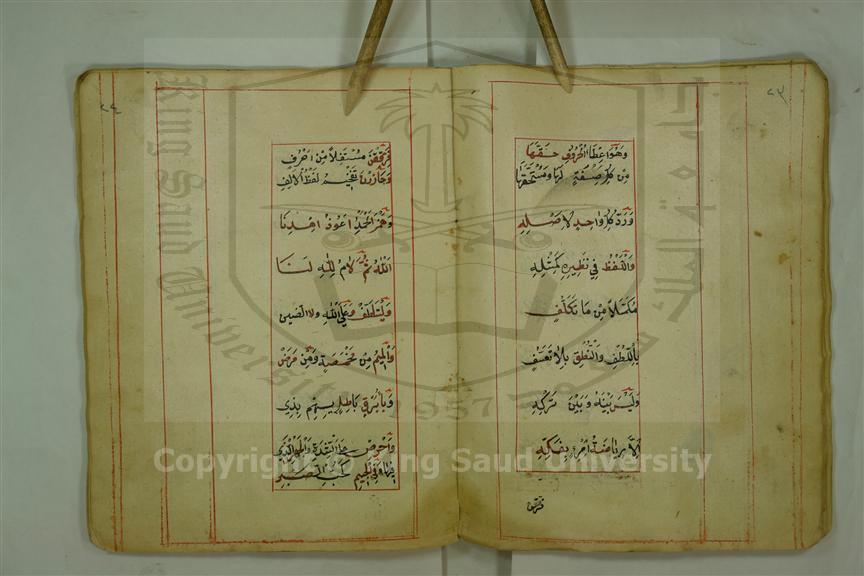 ٢٣
وَهُوَ اِعْطَاءُ الْحُرُوفِ حَقَّهَا
مِنْ كُلِّ صِفَةٍ لَهَا وَمُسْتَحَقَّهَا
وَرَدُّ كُلِّ وَاحِدٍ لِاَصْلِهِ
وَاللَّفْظُ فِي نَظِيرِهِ كَمِثْلِهِ
مُكَمَّلاً مِنْ مَا تَكَلُّفِ
بِاللُّطْفِ وَالنُّطْقِ بِلَا تَعَسُّفِ
وَلَيْسَ بَيْنَهُ وَبَيْنَ تَرْكِهِ
اِلاَّ رِيَاضَةُ امْرِءٍ بِفَكِّهِ
٢٤
فَرَقِّقَنْ مُسْتَفِلاً مِنْ اَحْرُفِ
وَحَاذِرَنْ تَفْخِيمَ لَفْظِ الْاَلِفِ
وَهَمْزَ اَلْحَمْدُ اَعُوذُ اِهْدِنَا
اَللهُ ثُمَّ لَامُ لِلَّهِ لَنَا
وَلْيَتَلَطَّفْ وَعَلَى اللهِ وَلَا الضَّ
وَالْمِيمُ مِنْ مَخْمَصَةٍ وَمِنْ مَرَضْ
وَبَاءُ بَرْقٍ بَاطِلٍ بِهِمْ بِذِي
وَاحْرِصْ عَلَى الشِّدَّةِ وَالْجَهْرِ الَّذِي
فِيهَا وَفِي الْجِيمِ كَحُبِّ الصَّبْرِ
King Saud University
جامعة الملك سعود
1957
Copyright © King Saud University